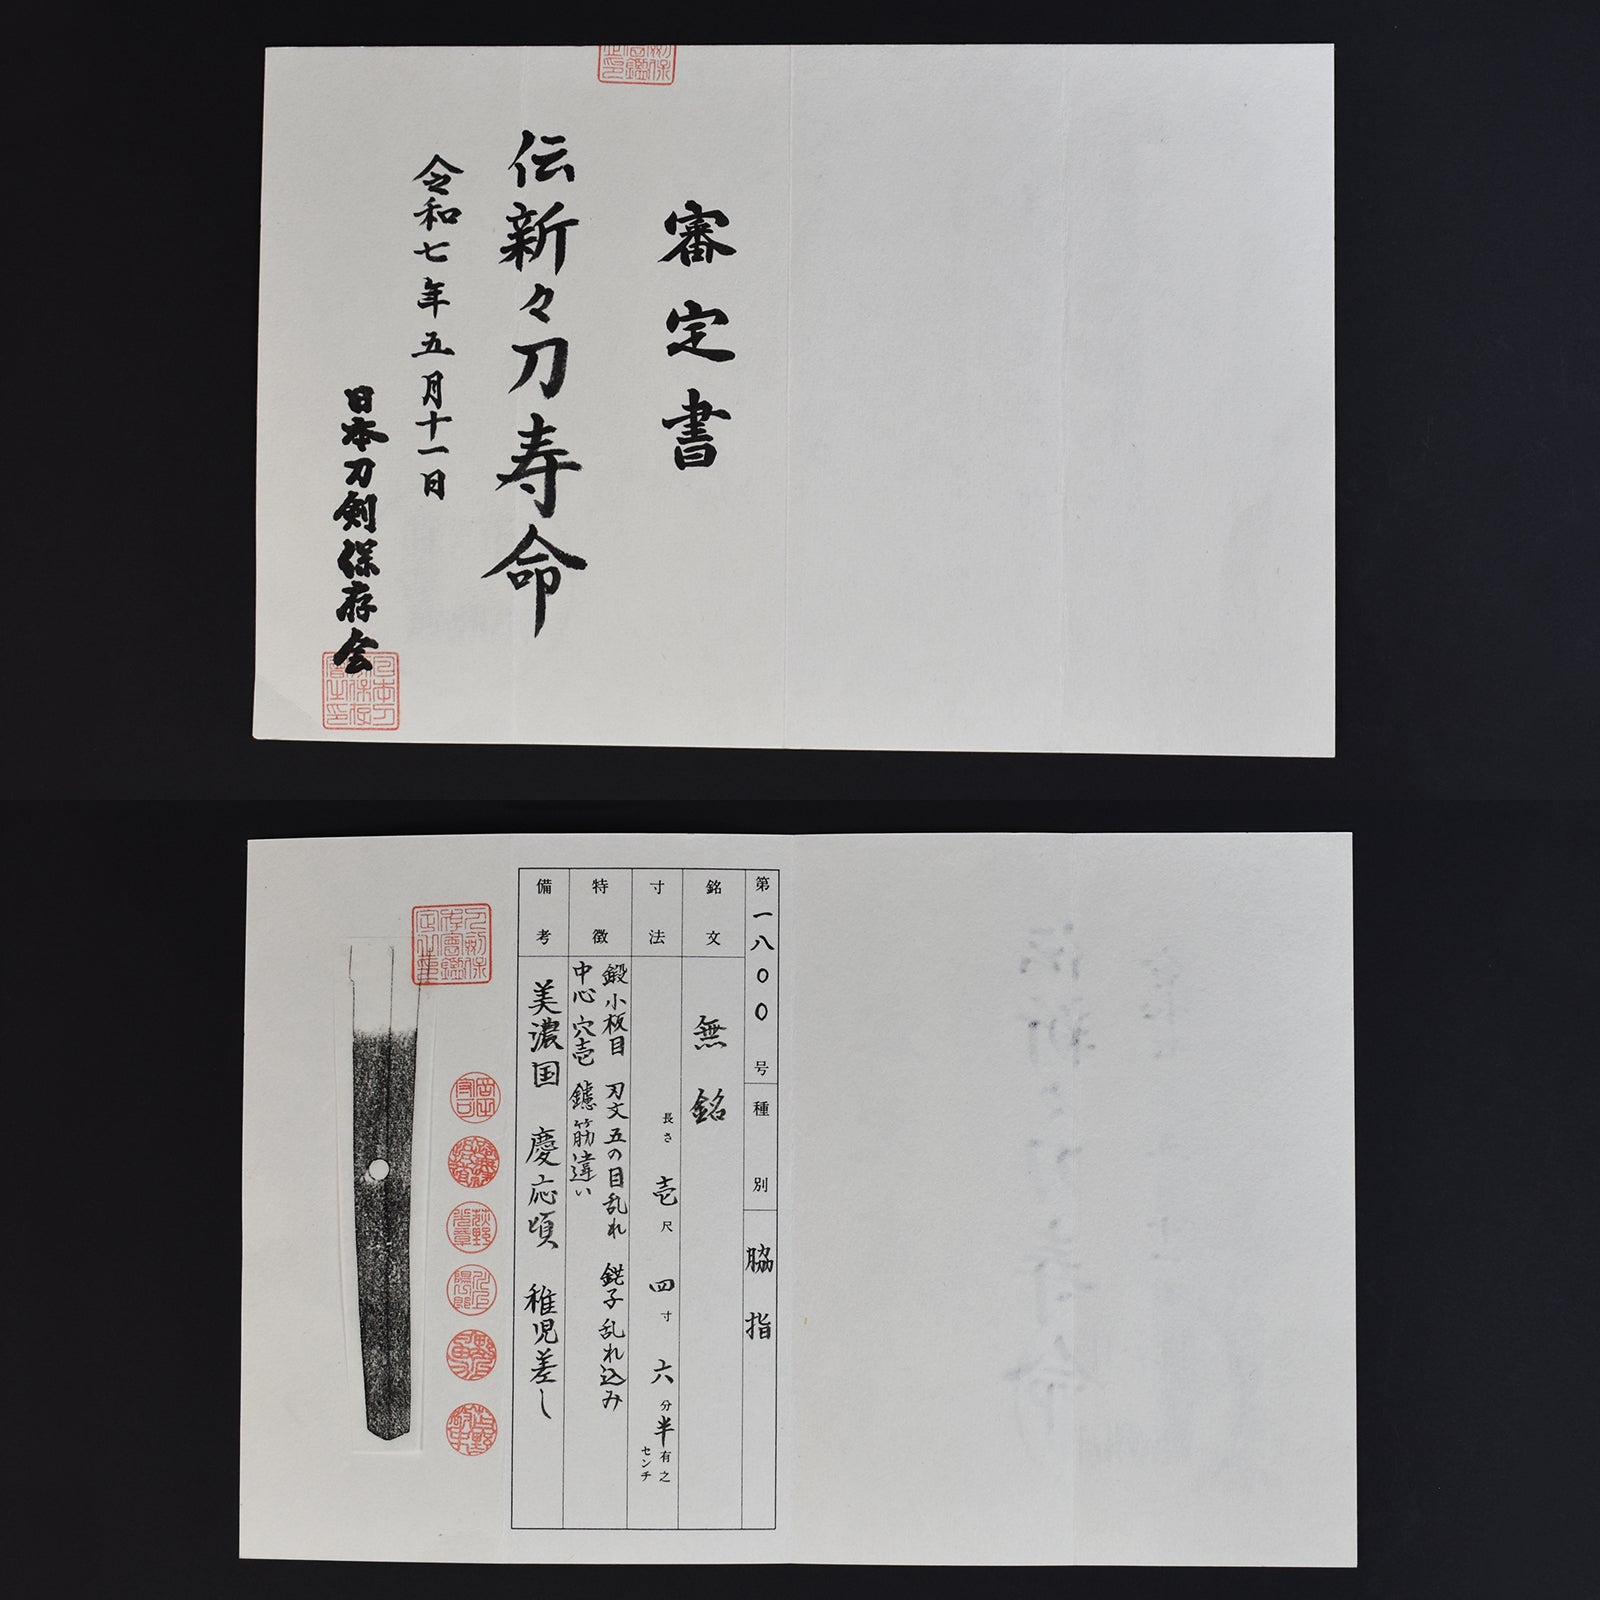 審定書
伝新々刀寿命
令和七年五月十一日
日本刀剣保存会
第一八〇〇号 種別 脇指
銘文 無銘
寸法 長さ 壱尺 四寸 六分半有之
センチ
特徴 鍛小板目 刃文五の目乱れ 鋩子乱れ込み
中心 穴壱 鑢筋違い
備考 美濃国 慶応頃 稚児差し